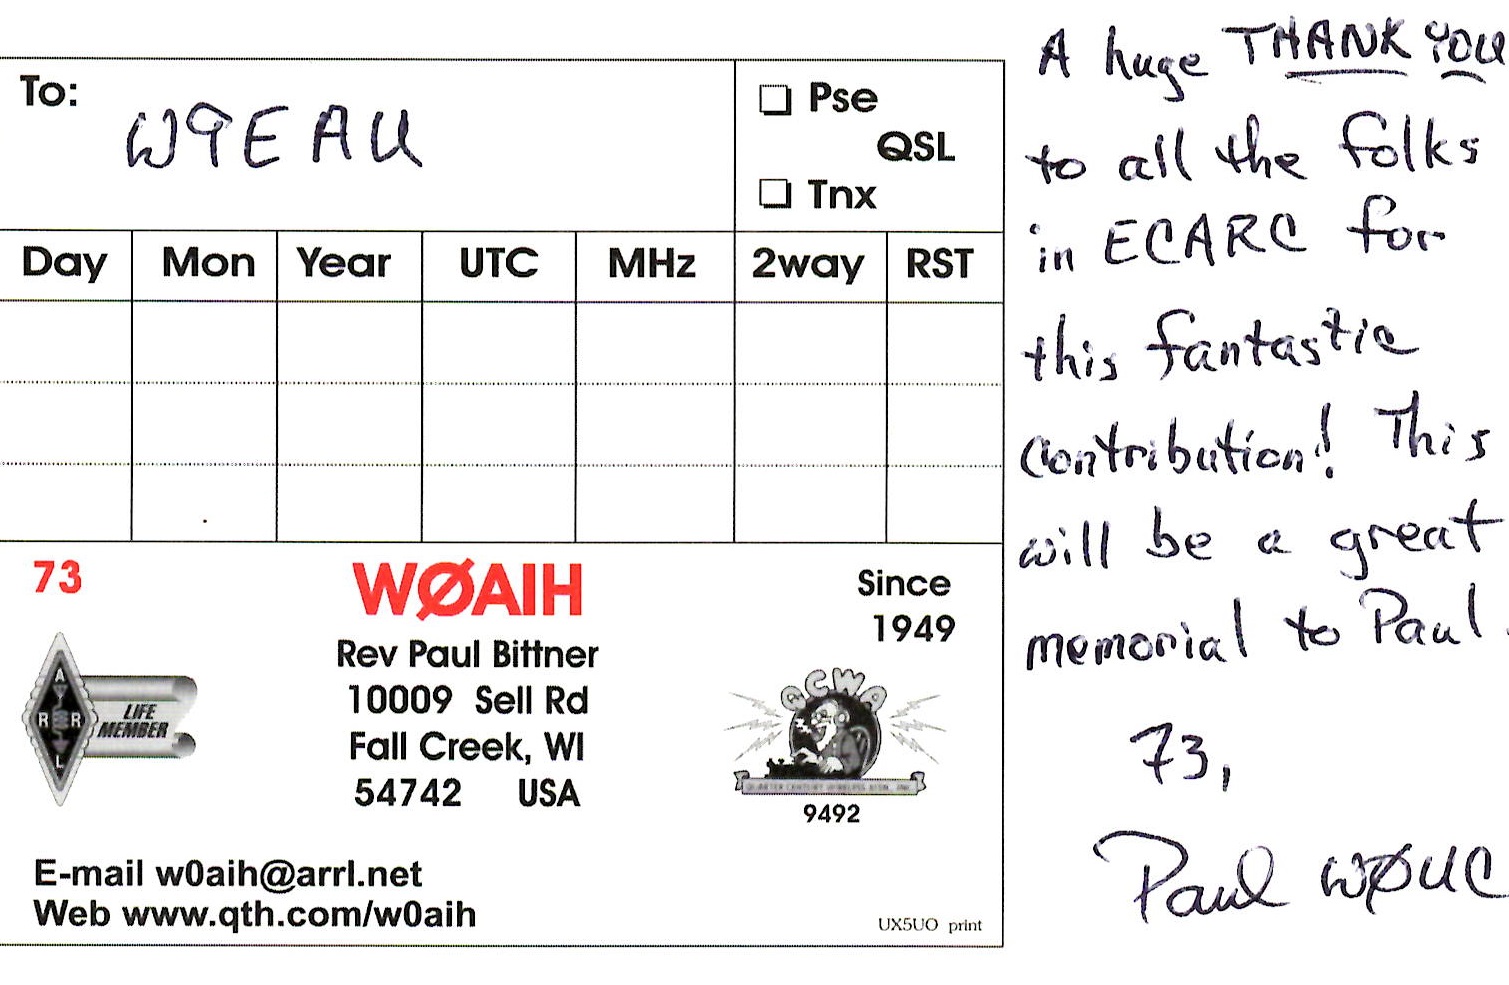 To: W9EAU
Pse
QSL
Tnx
Day Mon Year UTC MHz 2way RST
73
WØAIH
Since
1949
Rev Paul Bittner
10009 Sell Rd
Fall Creek, WI
54742 USA
ARRL
LIFE
MEMBER
QCWA
QUARTER CENTURY WIRELESS ASSN. INC.
9492
E-mail w0aih@arrl.net
Web www.qth.com/w0aih
UX5UO print
A huge THANK YOU
to all the folks
in ECARC for
this fantastic
contribution! This
will be a great
memorial to Paul.
73,
Paul WØUC